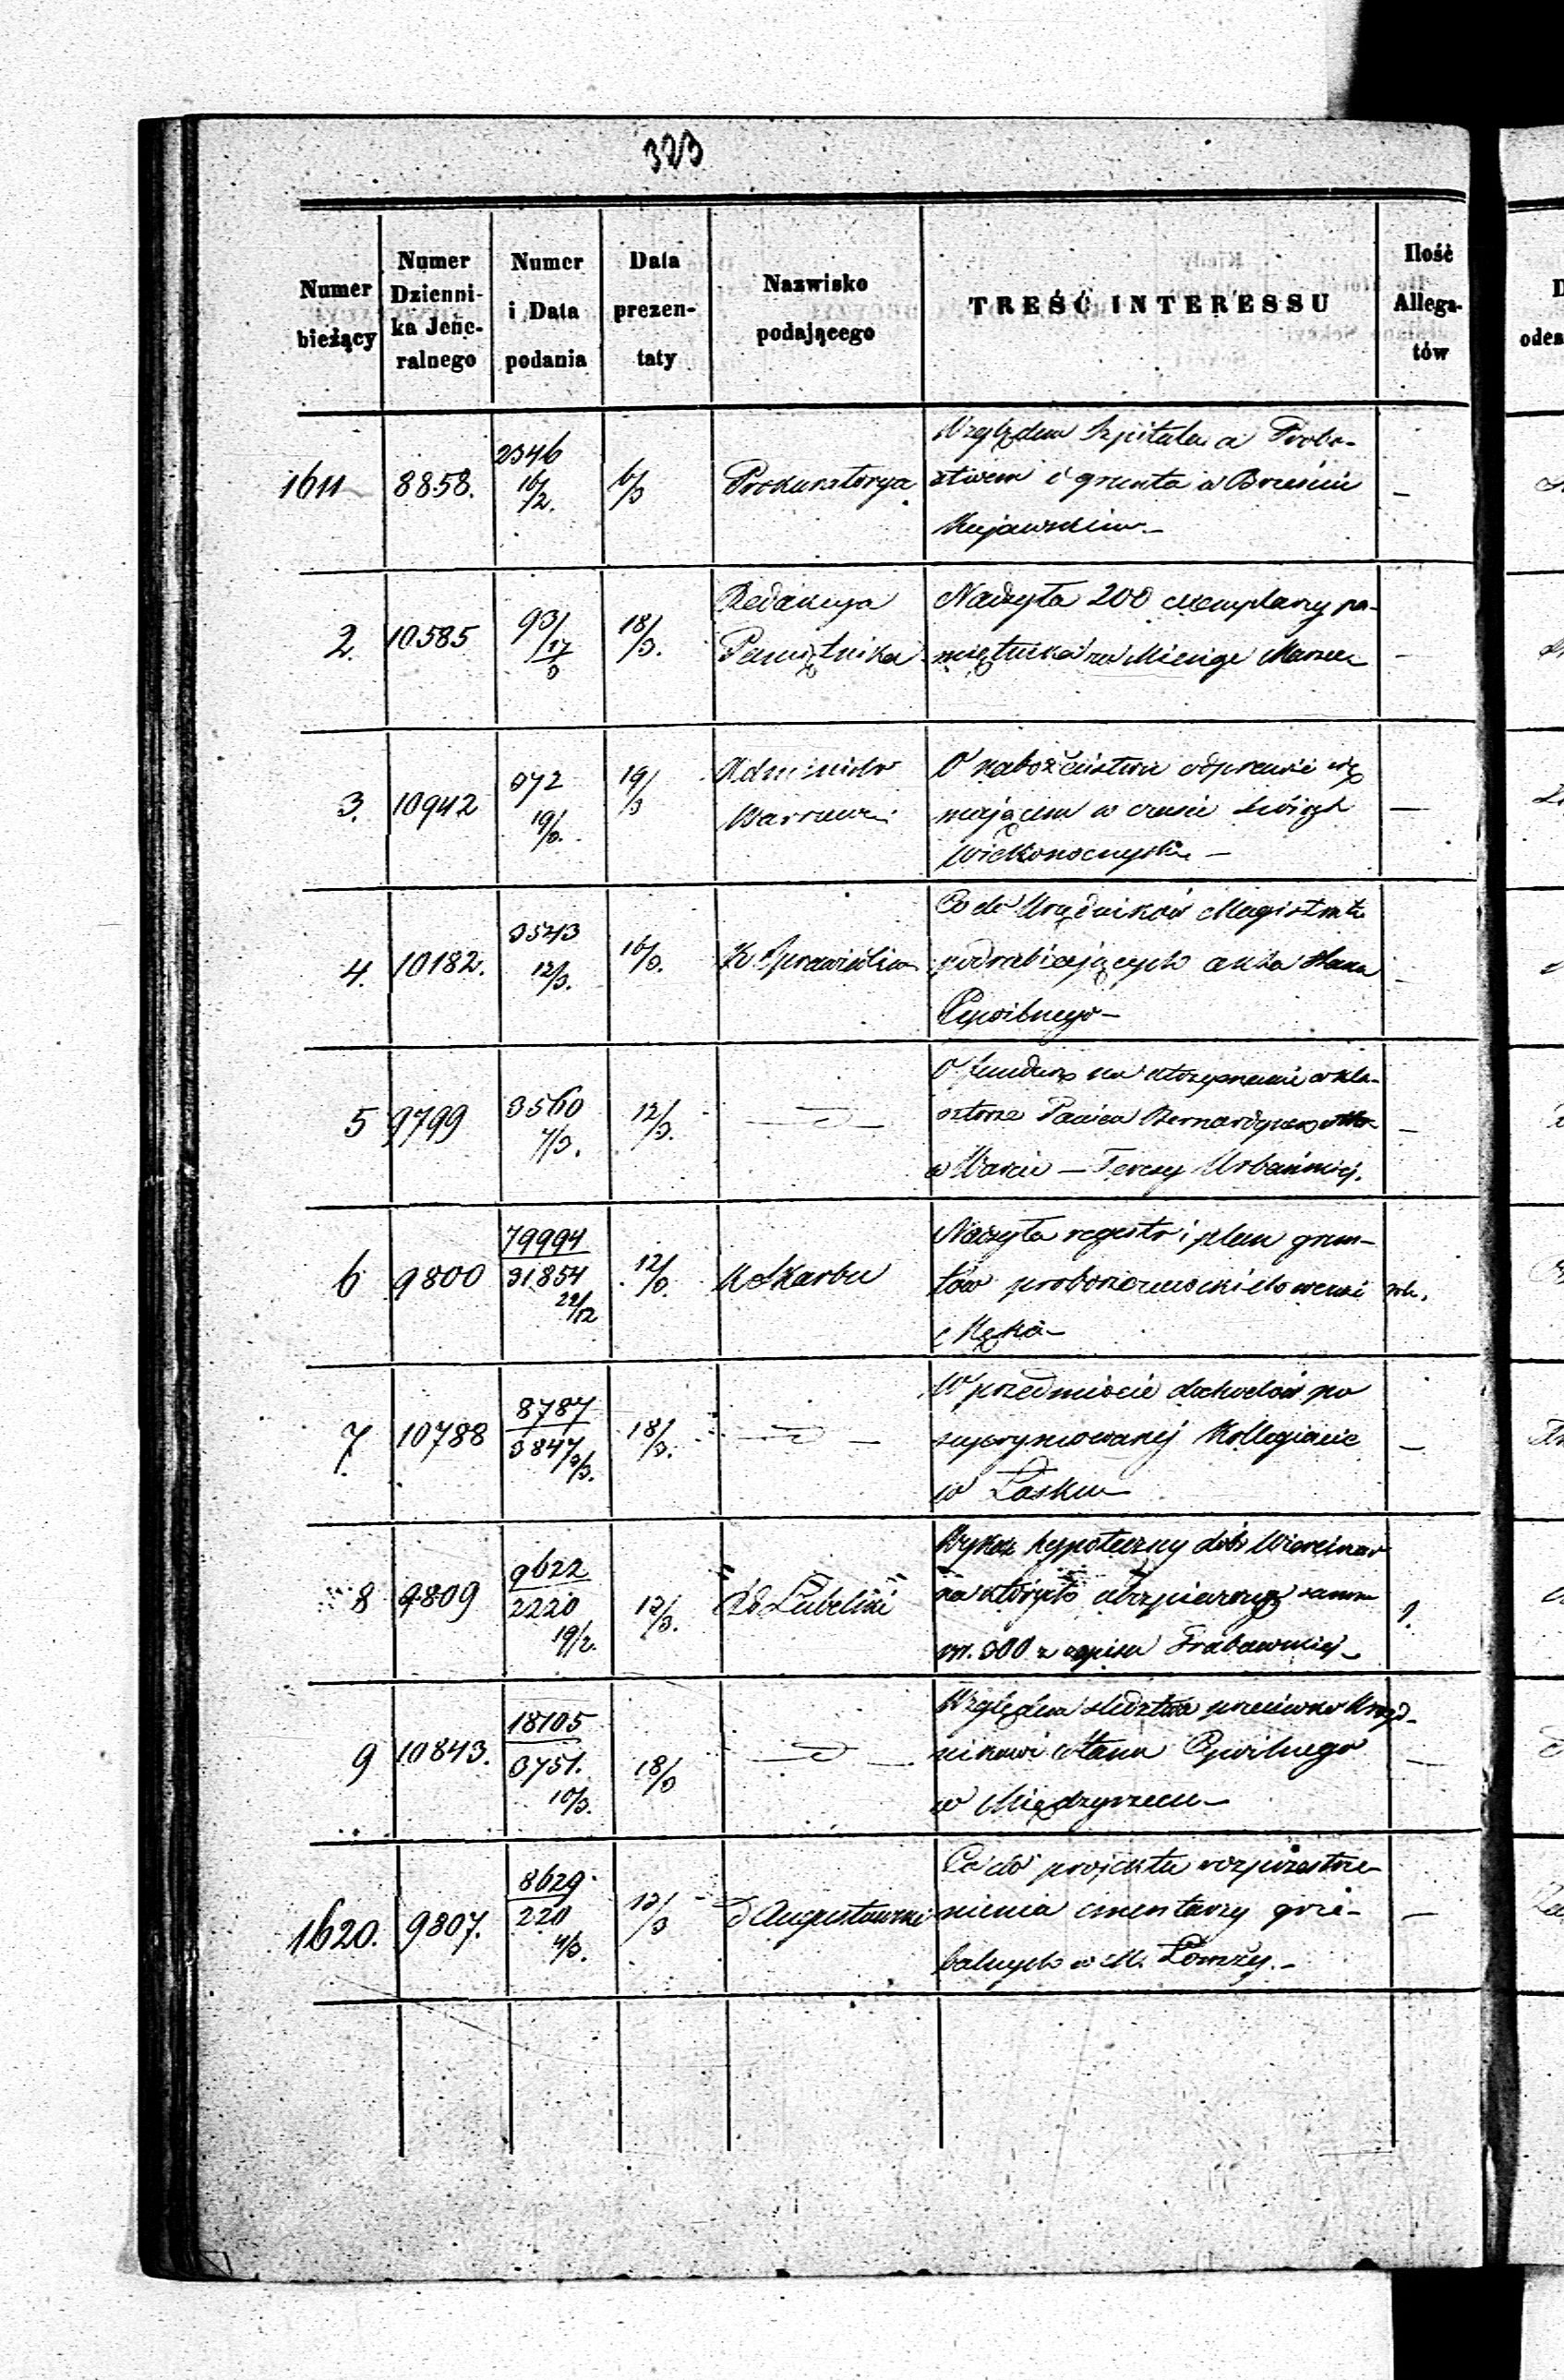 323
Numer bieżący | Numer Dziennika Jeneralnego | Numer i Data podania | Data prezentaty | Nazwisko podającego | TREŚĆ INTERESSU | Ilość Allegatów
1611 | 8858. | 2346 16/2. | 6/3 | Prokuratorya | Względem Szpitala a Probo-
stwem i grunta w Brześciu
Kujawskim —
2. | 10585 | 93/17/3 | 18/3. | Redakcya Pamiętnika | Nadsyła 200 exemplarzy pa-
miętnika za Miesiąc Marzec | —
3. | 10942 | 972 19/3. | 19/3 | Administr Warszaw: | O nabożeństwie odprawić się
mającem w czasie Świąt
Wielkonocnych — | —
4. | 10182. | 3543 12/3. | 16/3. | K Sprawiedliw | Co do Urzędników Magistratu
podrabiających akta Stanu
Cywilnego —
5 | 9799 | 3560 7/3. | 12/3. | — | O fundusz na utrzymanie w kla-
sztorze Panien Bernardynek
w Warcie — Teresy Urbańskiej. | —
6 | 9800 | 79994 31854 22/12 | 12/3. | K Skarbu | Nadsyła regestr i plan grun-
tów
7. | 10788 | 8787 3847 3/3. | 18/3. | — | W przedmiocie dochodów po
suprymowanej Kollegiacie
w Łasku — | —
8 | 9809 | 9622 2220 19/2. | 12/3. | Lubelski | Wykaz hypoteczny dóbr
na których ubezpieczony summa
300 z zapisu | 1.
9 | 10843. | 18105 3751. 10/3. | 18/3 | — | Względem śledztwa przeciwko Urzęd-
nikowi Stanu Cywilnego
w Międzyrzecu — | —
1620. | 9807. | 8629 220 4/3. | 12/3 | d Augustowski | Co do projektu rozprzestrze-
nienia cmentarzy grze-
balnych w M. Łomży. — | —